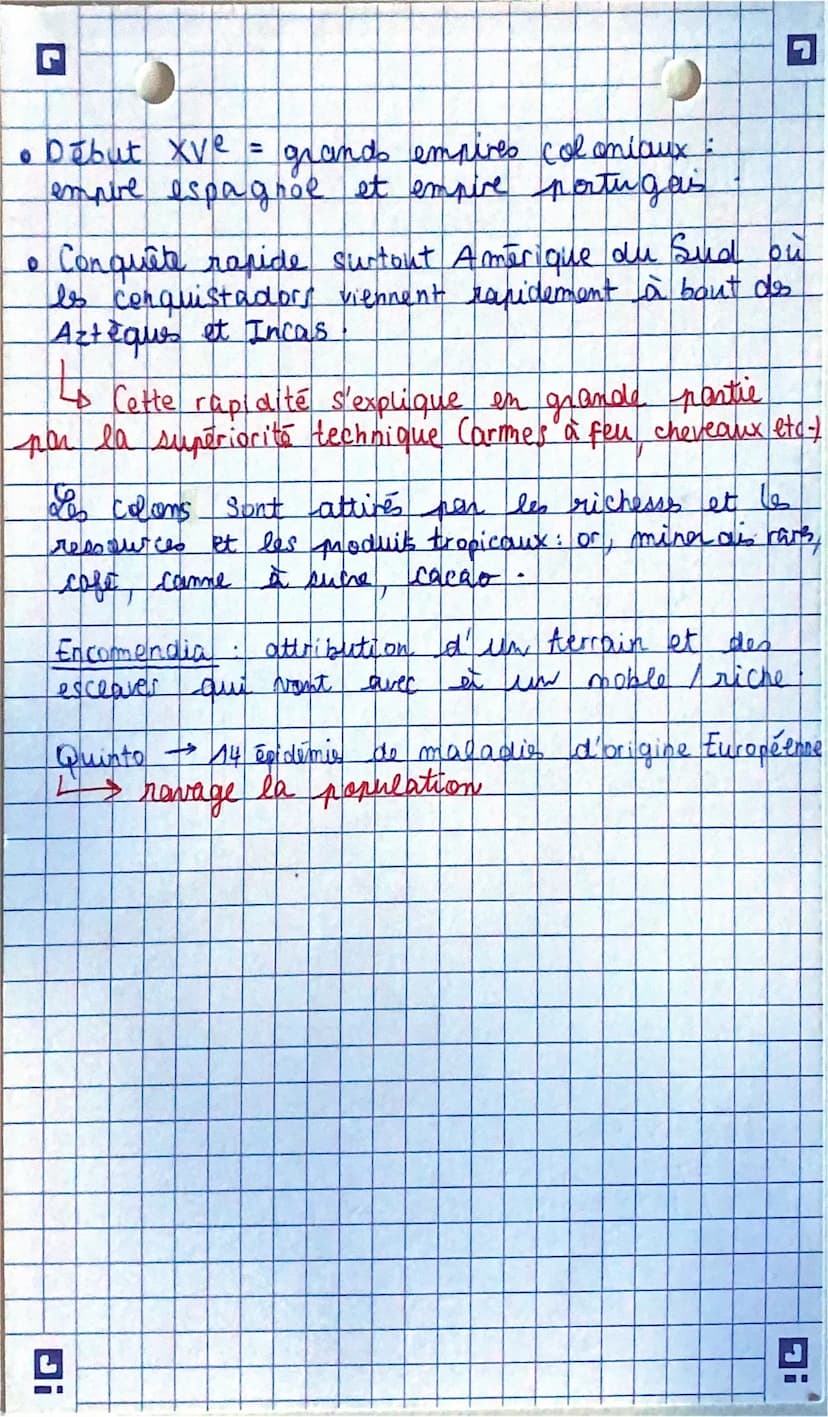 • Début XVe = grands empires coloniaux :
empire espagnol et empire portugais.
• Conquête rapide surtout Amérique du Sud où
les conquistadors viennent rapidement à bout des
Aztèques et Incas.
↳ Cette rapidité s'explique en grande partie
par la supériorité technique (armes à feu, cheveaux etc.)
Les colons sont attirés par les richesses et les
ressources et les produits tropicaux : or, minerais rares,
café, canne à sucre, cacao.
Encomendia : attribution d'un terrain et des
esclaves qui vont avec et un noble / riche.
Quinto → 14 épidémies de maladies d'origine Européenne
↳ ravage la population